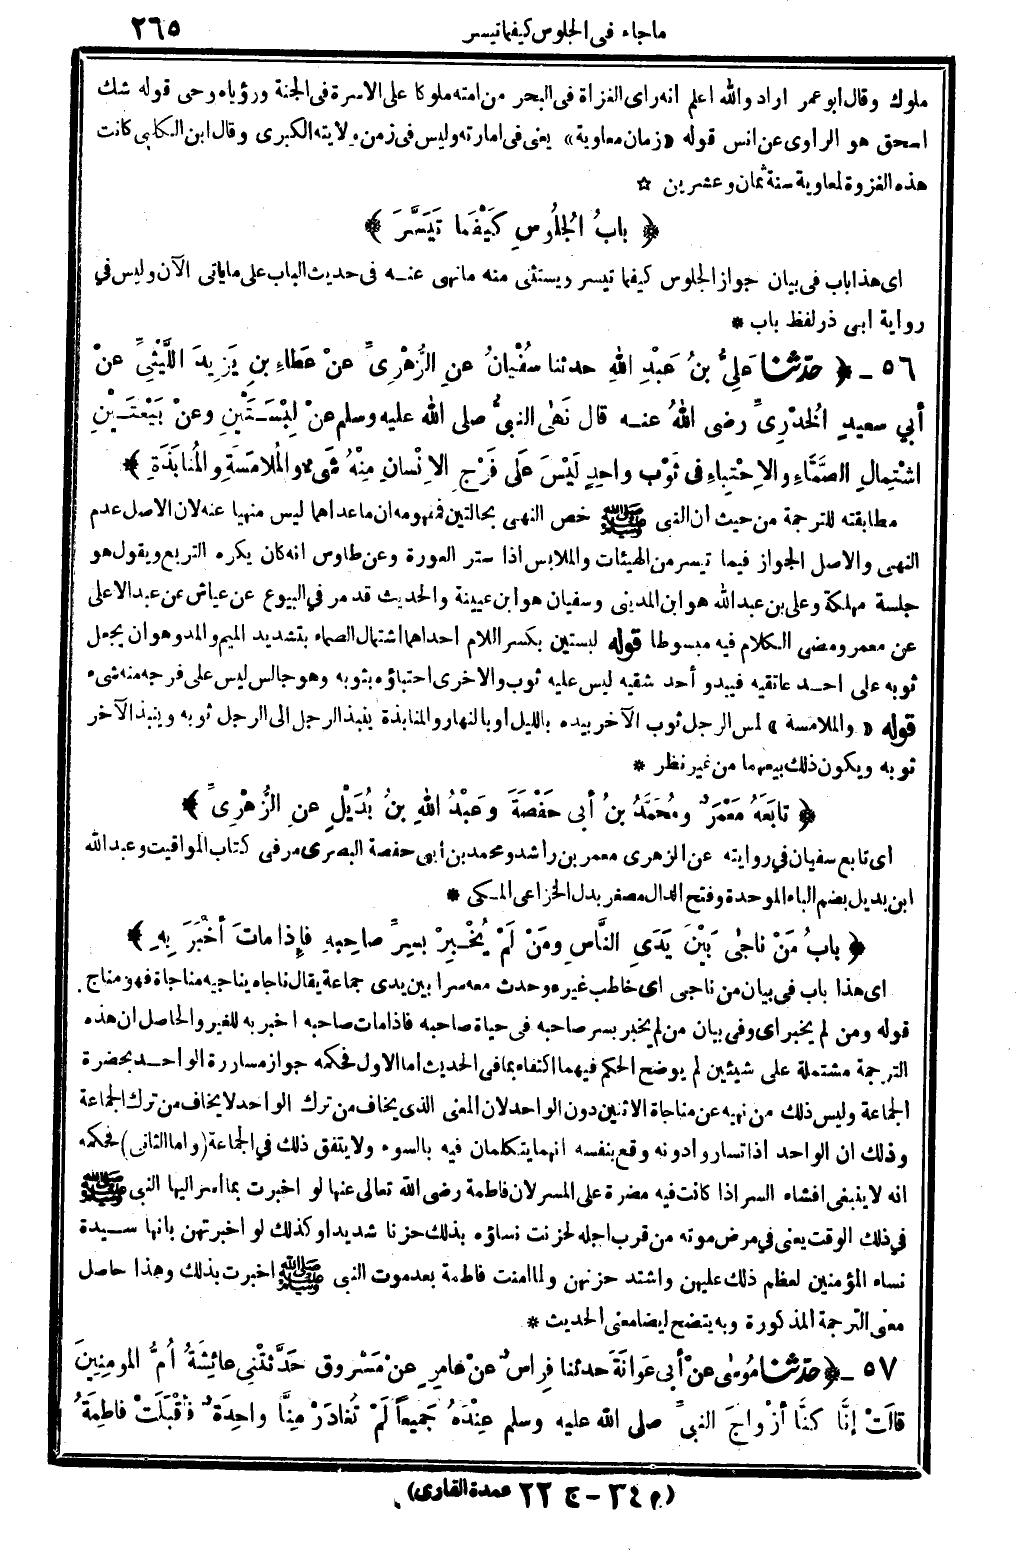 ماجاء في الجلوس كيفما تيسر ٢٦٥
ملوك وقال ابو عمر اراد والله اعلم انه راى الغزاة فى البحر من امته ملوكا على الاسرة فى الجنة ورؤياه وحى قوله شك
اسحق هو الراوى عن انس قوله «زمان معاوية» يعنى فى امارته وليس فى زمن ولايته الكبرى وقال ابن الكلبى كانت
هذه الغزوة لمعاوية سنة ثمان وعشرين ☆
﴿ بابُ الجُلُوسِ كَيْفَما تَيَسَّرَ ﴾
اى هذا باب فى بيان جواز الجلوس كيفما تيسر ويستثنى منه مانهى عنــه فى حديث الباب على ما ياتى الآن وليس في
رواية ابى ذر لفظ باب *
٥٦ ـ ﴿ حدّثنا عَلِيُّ بنُ عَبْدِ اللهِ حدثنا سُفْيانُ عنِ الزُّهْرِىِّ عنْ عَطاءِ بنِ يَزِيدَ اللَّيْثِيِّ عنْ
أبي سعيدٍ الخُدْرِىِّ رضى اللهُ عنــه قال نَهَى النبيُّ صلى الله عليه وسلم عنْ لِبْسَـتَيْنِ وعنْ بَيْعَتَـيْنِ
اشْتِمالِ الصَّمَّاءِ والاِحْتِباءِ فى ثَوْبٍ واحِدٍ لَيْسَ عَلَى فَرْجِ الإِنْسانِ مِنْهُ شَىْءٌ والمُلامَسَةِ والمُنابَذَةِ ﴾
مطابقته للترجمة من حيث ان النبى ﷺ خص النهى بحالتين فمفهومه ان ماعداهما ليس منهيا عنه لان الاصل عدم
النهى والاصل الجواز فيما تيسر من الهيئات والملابس اذا ستر العورة وعن طاوس انه كان يكره التربع ويقول هو
جلسة مهلكة وعلى بن عبدالله هو ابن المدينى وسفيان هو ابن عيينة والحديث قد مر في البيوع عن عياش عن عبدالاعلى
عن معمر ومضى الكلام فيه مبسوطا قوله لبستين بكسر اللام احداهما اشتمال الصماء بتشديد الميم والمد وهو ان يجعل
ثوبه على احــد عاتقيه فيبدو أحد شقيه ليس عليه ثوب والاخرى احتباؤه بثوبه وهو جالس ليس على فرجه منه شىء
قوله «والملامسة» لمس الرجل ثوب الآخر بيده بالليل او بالنهار والمنابذة ينبذ الرجل الى الرجل ثوبه وينبذ الآخر
ثوبه ويكون ذلك بيعهما من غير نظر *
﴿ تابَعَهُ مَعْمَرٌ ومُحَمَّدُ بنُ أبى حَفْصَةَ وعَبْدُ اللهِ بنُ بُدَيْلٍ عنِ الزُّهْرِىِّ ﴾
اى تابع سفيان في روايته عن الزهرى معمر بن راشد ومحمد بن أبى حفصة البصرى مر فى كتاب المواقيت وعبد الله
ابن بديل بضم الباء الموحدة وفتح الدال مصغر بدل الخزاعى المكى *
﴿ بابُ مَنْ ناجَى بَيْنَ يَدَىِ النَّاسِ ومَنْ لَمْ يُخْـبِرْ بِسِرِّ صاحِبِهِ فإِذا ماتَ أخْبَرَ بِهِ ﴾
اى هذا باب فى بيان من ناجى اى خاطب غيره وحدث معه سرا بين يدى جماعة يقال ناجاه يناجيه مناجاة فهو مناج
قوله ومن لم يخبر اى وفى بيان من لم يخبر بسر صاحبه فى حياة صاحبه فاذا مات صاحبه اخبر به للغير والحاصل ان هذه
الترجمة مشتملة على شيئين لم يوضح الحكم فيهما اكتفاء بما فى الحديث اما الاول فحكمه جواز مساررة الواحــد بحضرة
الجماعة وليس ذلك من نهيه عن مناجاة الاثنين دون الواحد لان المعنى الذى يخاف من ترك الواحد لا يخاف من ترك الجماعة
وذلك ان الواحد اذا تساروا دونه وقع بنفسه انهما يتكلمان فيه بالسوء ولا يتفق ذلك في الجماعة (واما الثانى) فحكمه
انه لا ينبغى افشاء السر اذا كانت فيه مضرة على المسر لان فاطمة رضى الله تعالى عنها لو اخبرت بما اسر اليها النبى ﷺ
في ذلك الوقت يعنى في مرض موته من قرب اجله لحزنت نساؤه بذلك حزنا شديدا وكذلك لو اخبرتهن بانها ســيدة
نساء المؤمنين لعظم ذلك عليهن واشتد حزنهن ولما امنت فاطمة بعد موت النبى ﷺ اخبرت بذلك وهذا حاصل
معنى الترجمة المذكورة وبه يتضح ايضا معنى الحديث *
٥٧ ـ ﴿ حدّثنا مُوسَى عنْ أبى عَوانَةَ حدثنا فِراسٌ عنْ عامِرٍ عنْ مَسْرُوقٍ حَدَّثَتْنِى عائِشَةُ أُمُّ المُومِنِينَ
قالَتْ إنَّا كُنَّا أزْواجَ النبىِّ صلى الله عليه وسلم عِنْدَهُ جَمِيعاً لَمْ تُغادَرْ مِنَّا واحِدَةٌ فأقْبَلَتْ فاطِمَةُ
(م ٣٤ - ج ٢٢ عمدة القارى)